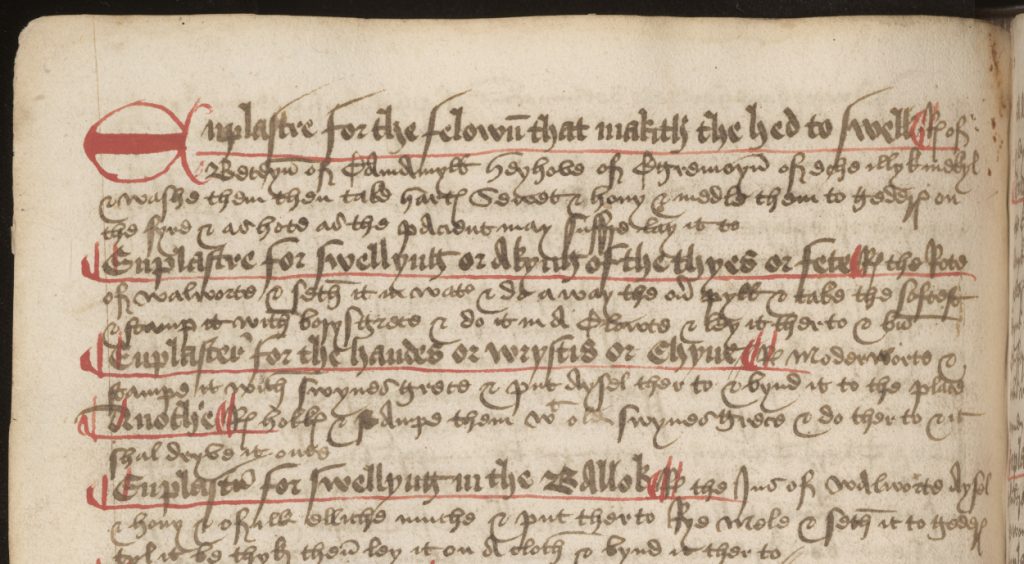 Enplastre for the felown̄ that makith the hed to swell ℞ of
Betayn̄ of Camamyll heyhove of Egremoyn̄ of eche illyke
& washe them then take hart Sewet & hony & medle them to geder on
the fyre & as hote as the pacient may suffre lay it to
Enplastre for swellyng or Akyng of the thyes or fete ℞ the Rote
of walworte & seth it in wat & do a way the ou pyll & take the softest
& stamp it with borys grece & do it in A & ley it ther to & bid
Enplaster for the handes or wrystis or Chyne ℞ moderworte &
stampe it with swynes grece & put Aysel ther to & bynd it to the place
Anothe ℞ hokke & stampe them wt old swynes grece & do ther to & it
shal dryve it oute
Enplastr for swellyng in the Ballok ℞ the Jus of walworte Aysel
& hony & of all elliche muche & put therto Rye mele & seth it to geder
tyl it be thyk then ley it on A cloth & bynd it ther to